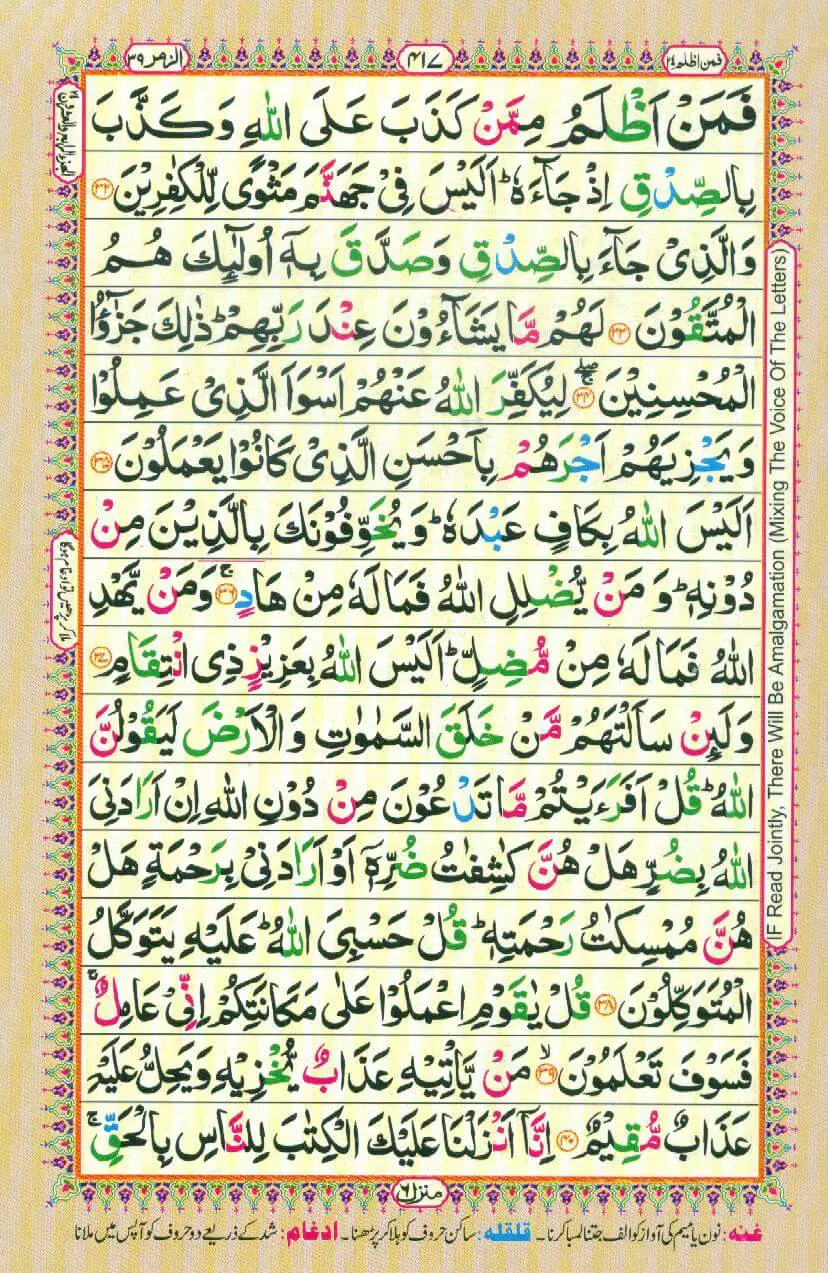 فمن اظلم ۲۴
۴۱۷
الزمر ۳۹
فَمَنْ اَظْلَمُ مِمَّنْ كَذَبَ عَلَى اللّٰهِ وَكَذَّبَ
بِالصِّدْقِ اِذْ جَآءَهٗ ؕ اَلَيْسَ فِيْ جَهَنَّمَ مَثْوًى لِّلْكٰفِرِيْنَ ۳۲
وَالَّذِيْ جَآءَ بِالصِّدْقِ وَصَدَّقَ بِهٖۤ اُولٰٓئِكَ هُمُ
الْمُتَّقُوْنَ ۳۳ لَهُمْ مَّا يَشَآءُوْنَ عِنْدَ رَبِّهِمْ ؕ ذٰلِكَ جَزٰٓؤُا
الْمُحْسِنِيْنَ ۳۴ لِيُكَفِّرَ اللّٰهُ عَنْهُمْ اَسْوَاَ الَّذِيْ عَمِلُوْا
وَيَجْزِيَهُمْ اَجْرَهُمْ بِاَحْسَنِ الَّذِيْ كَانُوْا يَعْمَلُوْنَ ۳۵
اَلَيْسَ اللّٰهُ بِكَافٍ عَبْدَهٗ ؕ وَيُخَوِّفُوْنَكَ بِالَّذِيْنَ مِنْ
دُوْنِهٖ ؕ وَمَنْ يُّضْلِلِ اللّٰهُ فَمَا لَهٗ مِنْ هَادٍ ۚ ۳۶ وَمَنْ يَّهْدِ
اللّٰهُ فَمَا لَهٗ مِنْ مُّضِلٍّ ؕ اَلَيْسَ اللّٰهُ بِعَزِيْزٍ ذِي انْتِقَامٍ ۳۷
وَلَئِنْ سَاَلْتَهُمْ مَّنْ خَلَقَ السَّمٰوٰتِ وَالْاَرْضَ لَيَقُوْلُنَّ
اللّٰهُ ؕ قُلْ اَفَرَءَيْتُمْ مَّا تَدْعُوْنَ مِنْ دُوْنِ اللّٰهِ اِنْ اَرَادَنِيَ
اللّٰهُ بِضُرٍّ هَلْ هُنَّ كٰشِفٰتُ ضُرِّهٖۤ اَوْ اَرَادَنِيْ بِرَحْمَةٍ هَلْ
هُنَّ مُمْسِكٰتُ رَحْمَتِهٖ ؕ قُلْ حَسْبِيَ اللّٰهُ ؕ عَلَيْهِ يَتَوَكَّلُ
الْمُتَوَكِّلُوْنَ ۳۸ قُلْ يٰقَوْمِ اعْمَلُوْا عَلٰى مَكَانَتِكُمْ اِنِّيْ عَامِلٌ ۚ
فَسَوْفَ تَعْلَمُوْنَ ۙ ۳۹ مَنْ يَّاْتِيْهِ عَذَابٌ يُّخْزِيْهِ وَيَحِلُّ عَلَيْهِ
عَذَابٌ مُّقِيْمٌ ۴۰ اِنَّاۤ اَنْزَلْنَا عَلَيْكَ الْكِتٰبَ لِلنَّاسِ بِالْحَقِّ ۚ
منزل ۶
غنه: نون یا میم کی آواز کو الف جتنا لمبا کرنا۔ قلقله: ساکن حروف کو ہلا کر پڑھنا۔ ادغام: شد کے ذریعے دو حروف کو آپس میں ملانا
IF Read Jointly, There Will Be Amalgamation (Mixing The Voice Of The Letters)